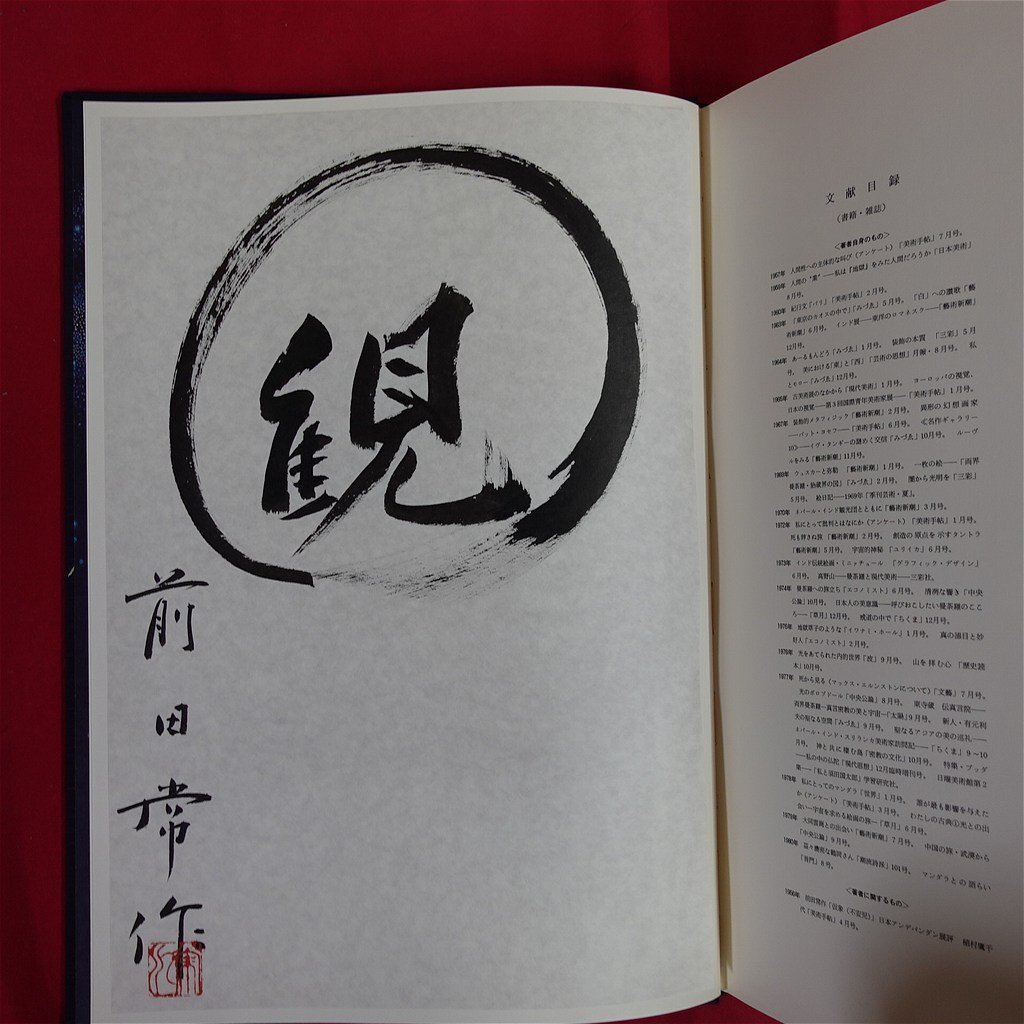 観
前田常作
文献目録
(書籍・雑誌)
<著者自身のもの>
1957年 人間性への主体的な叫び(アンケート)「美術手帖」7月号。
1959年 人間の“業”——私は『地獄』をみた人間だろうか「日本美術」
8月号。
1960年 紀行文「パリ」「美術手帖」2月号。
1963年 「東京のカオスの中で」「みづゑ」5月号。 「白」への讃歌「藝
術新潮」6月号。 インド展——東洋のロマネスク——「藝術新潮」
12月号。
1964年 あーるもんどう「みづゑ」1月号。 装飾の本質 「三彩」5月
号。 美における「東」と「西」「芸術の思想」月報・8月号。 私
とモロー「みづゑ」12月号。
1965年 古美術展のなかから「現代美術」1月号。 ヨーロッパの視覚、
日本の視覚——第3回国際青年美術家展——「美術手帖」1月号。
1967年 装飾的メタフィジック「藝術新潮」2月号。 異形の幻想画家
——パット・ヨセフ——「美術手帖」6月号。 ≪名作ギャラリー
10≫——イヴ・タンギーの謎めく交信「みづゑ」10月号。 ルーヴ
ルをみる「藝術新潮」11月号。
1969年 ウェスカーと弥勒 「藝術新潮」1月号。 一枚の絵——「両界
曼荼羅・胎蔵界の図」「みづゑ」2月号。 闇から光明を「三彩」
5月号。 絵日記——1969年「季刊芸術・夏」。
1970年 ネパール・インド観光団とともに「藝術新潮」3月号。
1972年 私にとって批判とはなにか(アンケート)「美術手帖」1月号。
死も辞さぬ旅 「藝術新潮」2月号。 創造の原点を示すタントラ
「藝術新潮」5月号。 宇宙的神秘 「ユリイカ」6月号。
1973年 インド伝統絵画・ミニッチュール 「グラフィック・デザイン」
6月号。 高野山——曼荼羅と現代美術——三彩社。
1974年 曼荼羅への旅立ち「エコノミスト」6月号。 清冽な響き「中央
公論」10月号。 日本人の美意識——呼びおこしたい曼荼羅のここ
ろ——「草月」12月号。 戒道の中で「ちくま」12月号。
1975年 地獄草子のような「イワナミ・ホール」1月号。 真の涌目と妙
好人「エコノミスト」2月号。
1976年 光をあてられた内的世界「波」9月号。 山を拝む心 「歴史読
本」10月号。
1977年 死から見る(マックス・エルンストンについて)「文藝」7月号。
光のボロブドール「中央公論」8月号。 東寺蔵 伝真言院——
両界曼荼羅—真言密教の美と宇宙—「太陽」9月号。 新人・有元利
夫の聖なる空間「みづゑ」9月号。 聖なるアジアの美の巡礼——
ネパール・インド・スリランカ美術家訪問記——「ちくま」9〜10
月号。 神と共に棲む島「密教の文化」10月号。 特集・ブッダ
——私の中の仏陀「現代思想」12月臨時増刊号。 日曜美術館第2
集——「私と須田国太郎」学習研究社。
1978年 私にとってのマンダラ「世界」1月号。 誰が最も影響を与えた
か(アンケート)「美術手帖」3月号。 わたしの古典①光との出
会い—宇宙を求める絵画の旅—「草月」6月号。
1979年 大同雲崗との出会い「藝術新潮」7月号。 中国の旅・武漢から
「中央公論」9月号。
1980年 益々濃密な鶴岡さん「潮流詩派」101号。 マンダラとの語らい
「普門」8号。
<著者に関するもの>
1956年 前田常作「仮象(不安児)」日本アンデパンダン展評 植村鷹千
代「美術手帖」4月号。